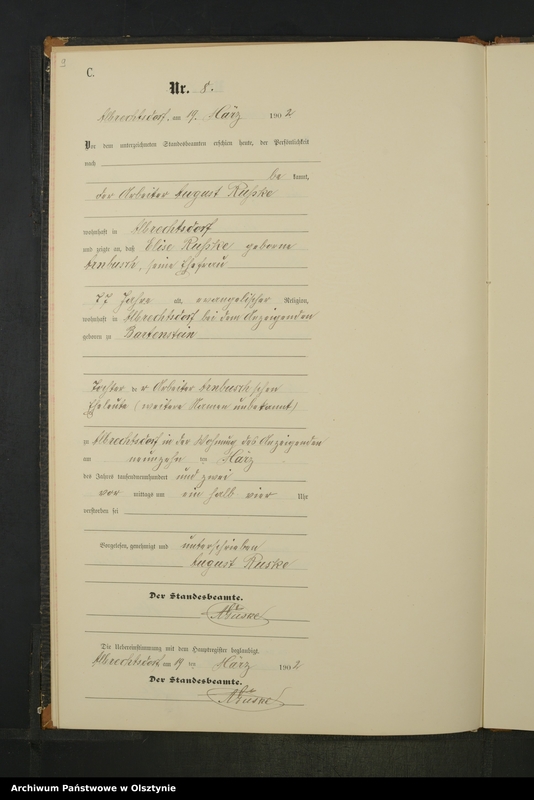 2
C.
Nr. 8.
Albrechtsdorf, am 19. März 1902
Vor dem unterzeichneten Standesbeamten erschien heute, der Persönlichkeit
nach
be kannt,
der Arbeiter August Rußko
wohnhaft in Albrechtsdorf
und zeigte an, daß Elise Rußke geborne
seine Ehefrau
77 Jahre alt, evangelischer Religion,
wohnhaft in Albrechtsdorf bei dem Anzeigenden
geboren zu Bartenstein
Tochter der Arbeiter
Eheleute (weitere Namen unbekannt)
zu Albrechtsdorf in der Wohnung des Anzeigenden
am neunzehn ten März
des Jahres tausendneunhundert und zwei
vor mittags um ein halb vier Uhr
verstorben sei
Vorgelesen, genehmigt und unterschrieben
August Rusko
Der Standesbeamte.
Die Uebereinstimmung mit dem Hauptregister beglaubigt.
Albrechtsdorf am 19 ten März 1902
Der Standesbeamte.
Archiwum Państwowe w Olsztynie